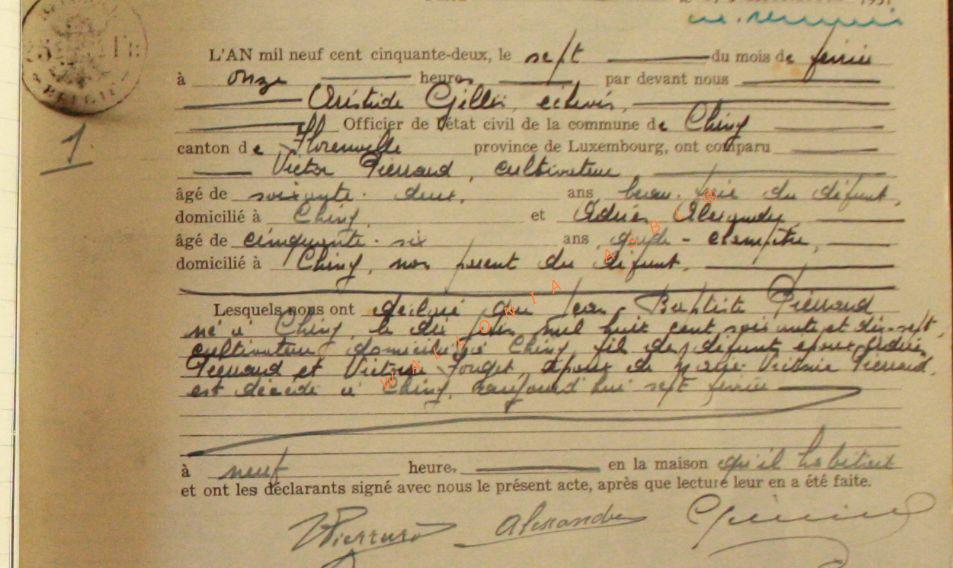 25 Fr
BELGIE
L'AN mil neuf cent cinquante-deux, le sept du mois de février
à onze heures par devant nous
Aristide Gillet, échevin,
1 Officier de l'état civil de la commune de Chiny
canton de Florenville province de Luxembourg, ont comparu
Victor Pierrard, cultivateur
âgé de soixante-deux, ans beau-frère du défunt,
domicilié à Chiny et Adrien Alexandre,
âgé de cinquante-six ans, garde-champêtre,
domicilié à Chiny, non parent du défunt,
Lesquels nous ont déclaré que Jean Baptiste Pierrard
né à Chiny, le dix juin mil huit cent soixante et dix-sept,
cultivateur domicilié à Chiny, fils des défunts époux
Pierrard et Victoire Fouget, époux de Marie Victoire Pierrard,
est décédé à Chiny, aujourd'hui sept février
à neuf heure, en la maison qu'il habitait
et ont les déclarants signé avec nous le présent acte, après que lecture leur en a été faite.
VPierrard Alexandre